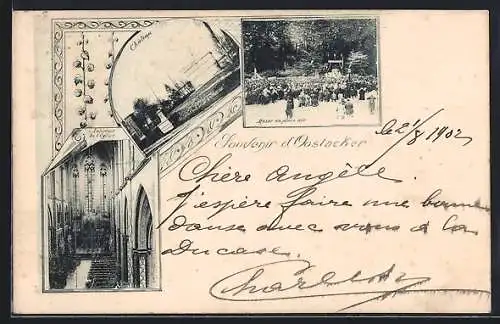 Château
Messe en plein air
Intérieur
de l'Église
Souvenir d'Oostacker
le 2/8 1902
Chère Angèle.
J'espère faire une bonne
danse avec vous à la
Ducasse.